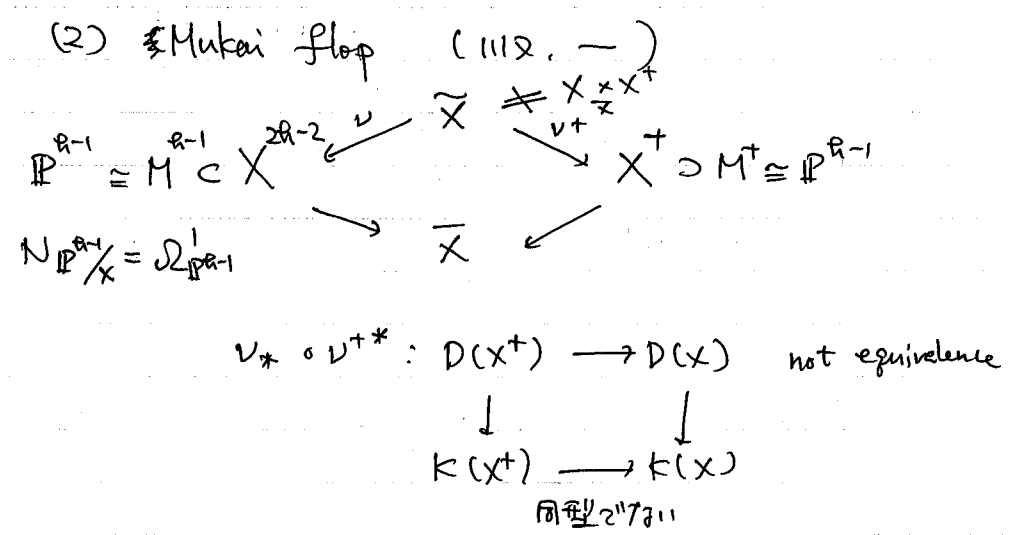 (2) Mukai flop (川又. —)
X̃ ≠ X ×_X̄ X⁺
ν ν⁺
ℙ^{h-1} ≅ M^{h-1} ⊂ X^{2h-2} X⁺ ⊃ M⁺ ≅ ℙ^{h-1}
N_{ℙ^{h-1}/X} = Ω¹_{ℙ^{h-1}} X̄
ν_* ∘ ν^{+*} : D(X⁺) → D(X) not equivalence
↓ ↓
K(X⁺) → K(X)
同型でない